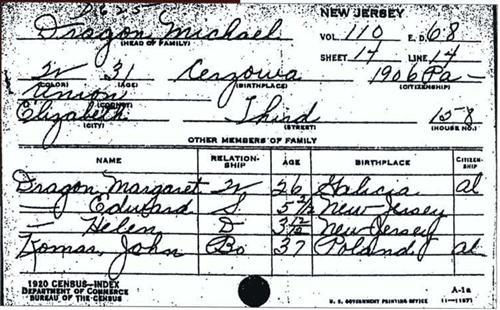 D625 NEW JERSEY
Dragon, Michael VOL. 110 E.D. 68
(HEAD OF FAMILY) SHEET 14 LINE 14
W 31 1906 Pa-
(COLOR) (AGE) (BIRTHPLACE) (CITIZENSHIP)
Union
(COUNTY)
Elizabeth Third 158
(CITY) (STREET) (HOUSE NO.)
OTHER MEMBERS OF FAMILY
NAME RELATION-SHIP AGE BIRTHPLACE CITIZEN-SHIP
Dragon, Margaret W 26 Galicia al
— Edward S 5 New Jersey
— Helen D 3 New Jersey
Komar, John Bo 37 Poland al
1920 CENSUS—INDEX
DEPARTMENT OF COMMERCE A-1a
BUREAU OF THE CENSUS U. S. GOVERNMENT PRINTING OFFICE 11—11871